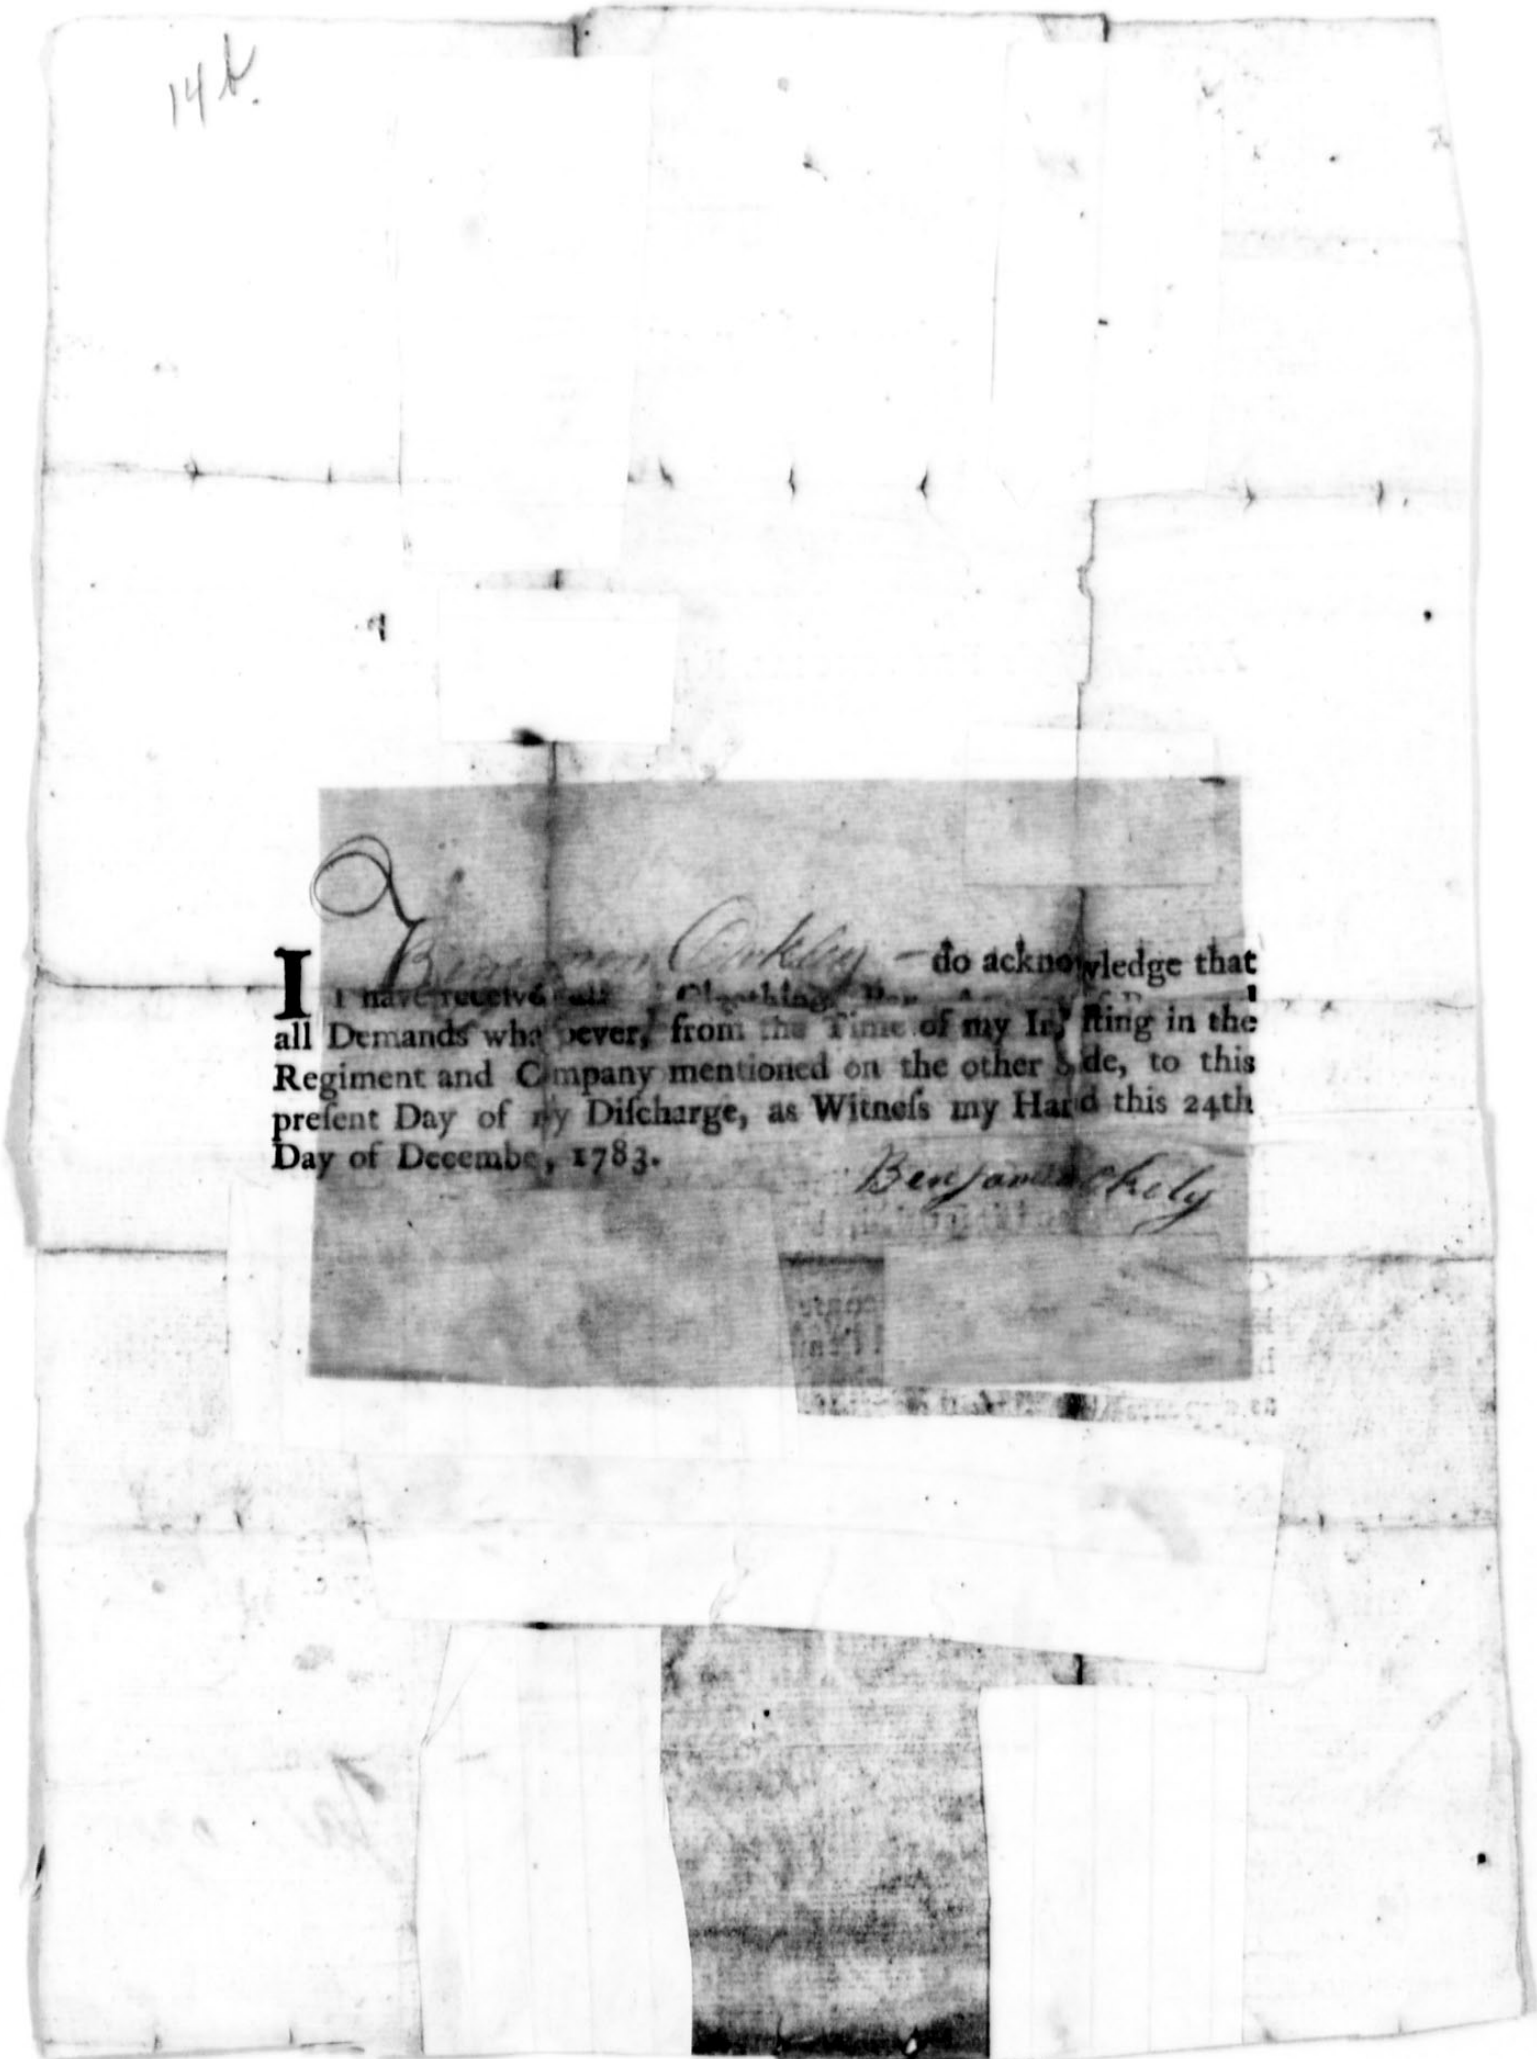 14 b.
I Benjamin Oakley — do acknowledge that
I have received all Cloathing, Pay, Arrears of
all Demands whatsoever, from the Time of my Inlisting in the
Regiment and Company mentioned on the other Side, to this
preſent Day of my Diſcharge, as Witneſs my Hand this 24th
Day of December, 1783.
Benjamin Okely